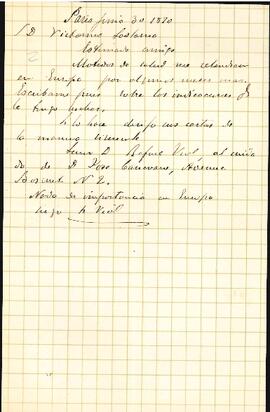 Paris junio 30 1890
S D Victorino Lastarria
Estimado amigo
Motivos de salud me retendran
en Europa por algunos meses mas.
Escribame pues sobre las indicaciones q
le tengo hechas.
Si lo hace dirija sus cartas de
la manera siguiente
Senor D. Rafael Vial, al cuida
do de D. Jose Avenue
Bosquet N 2.
Nada de importancia en Europa
Vial